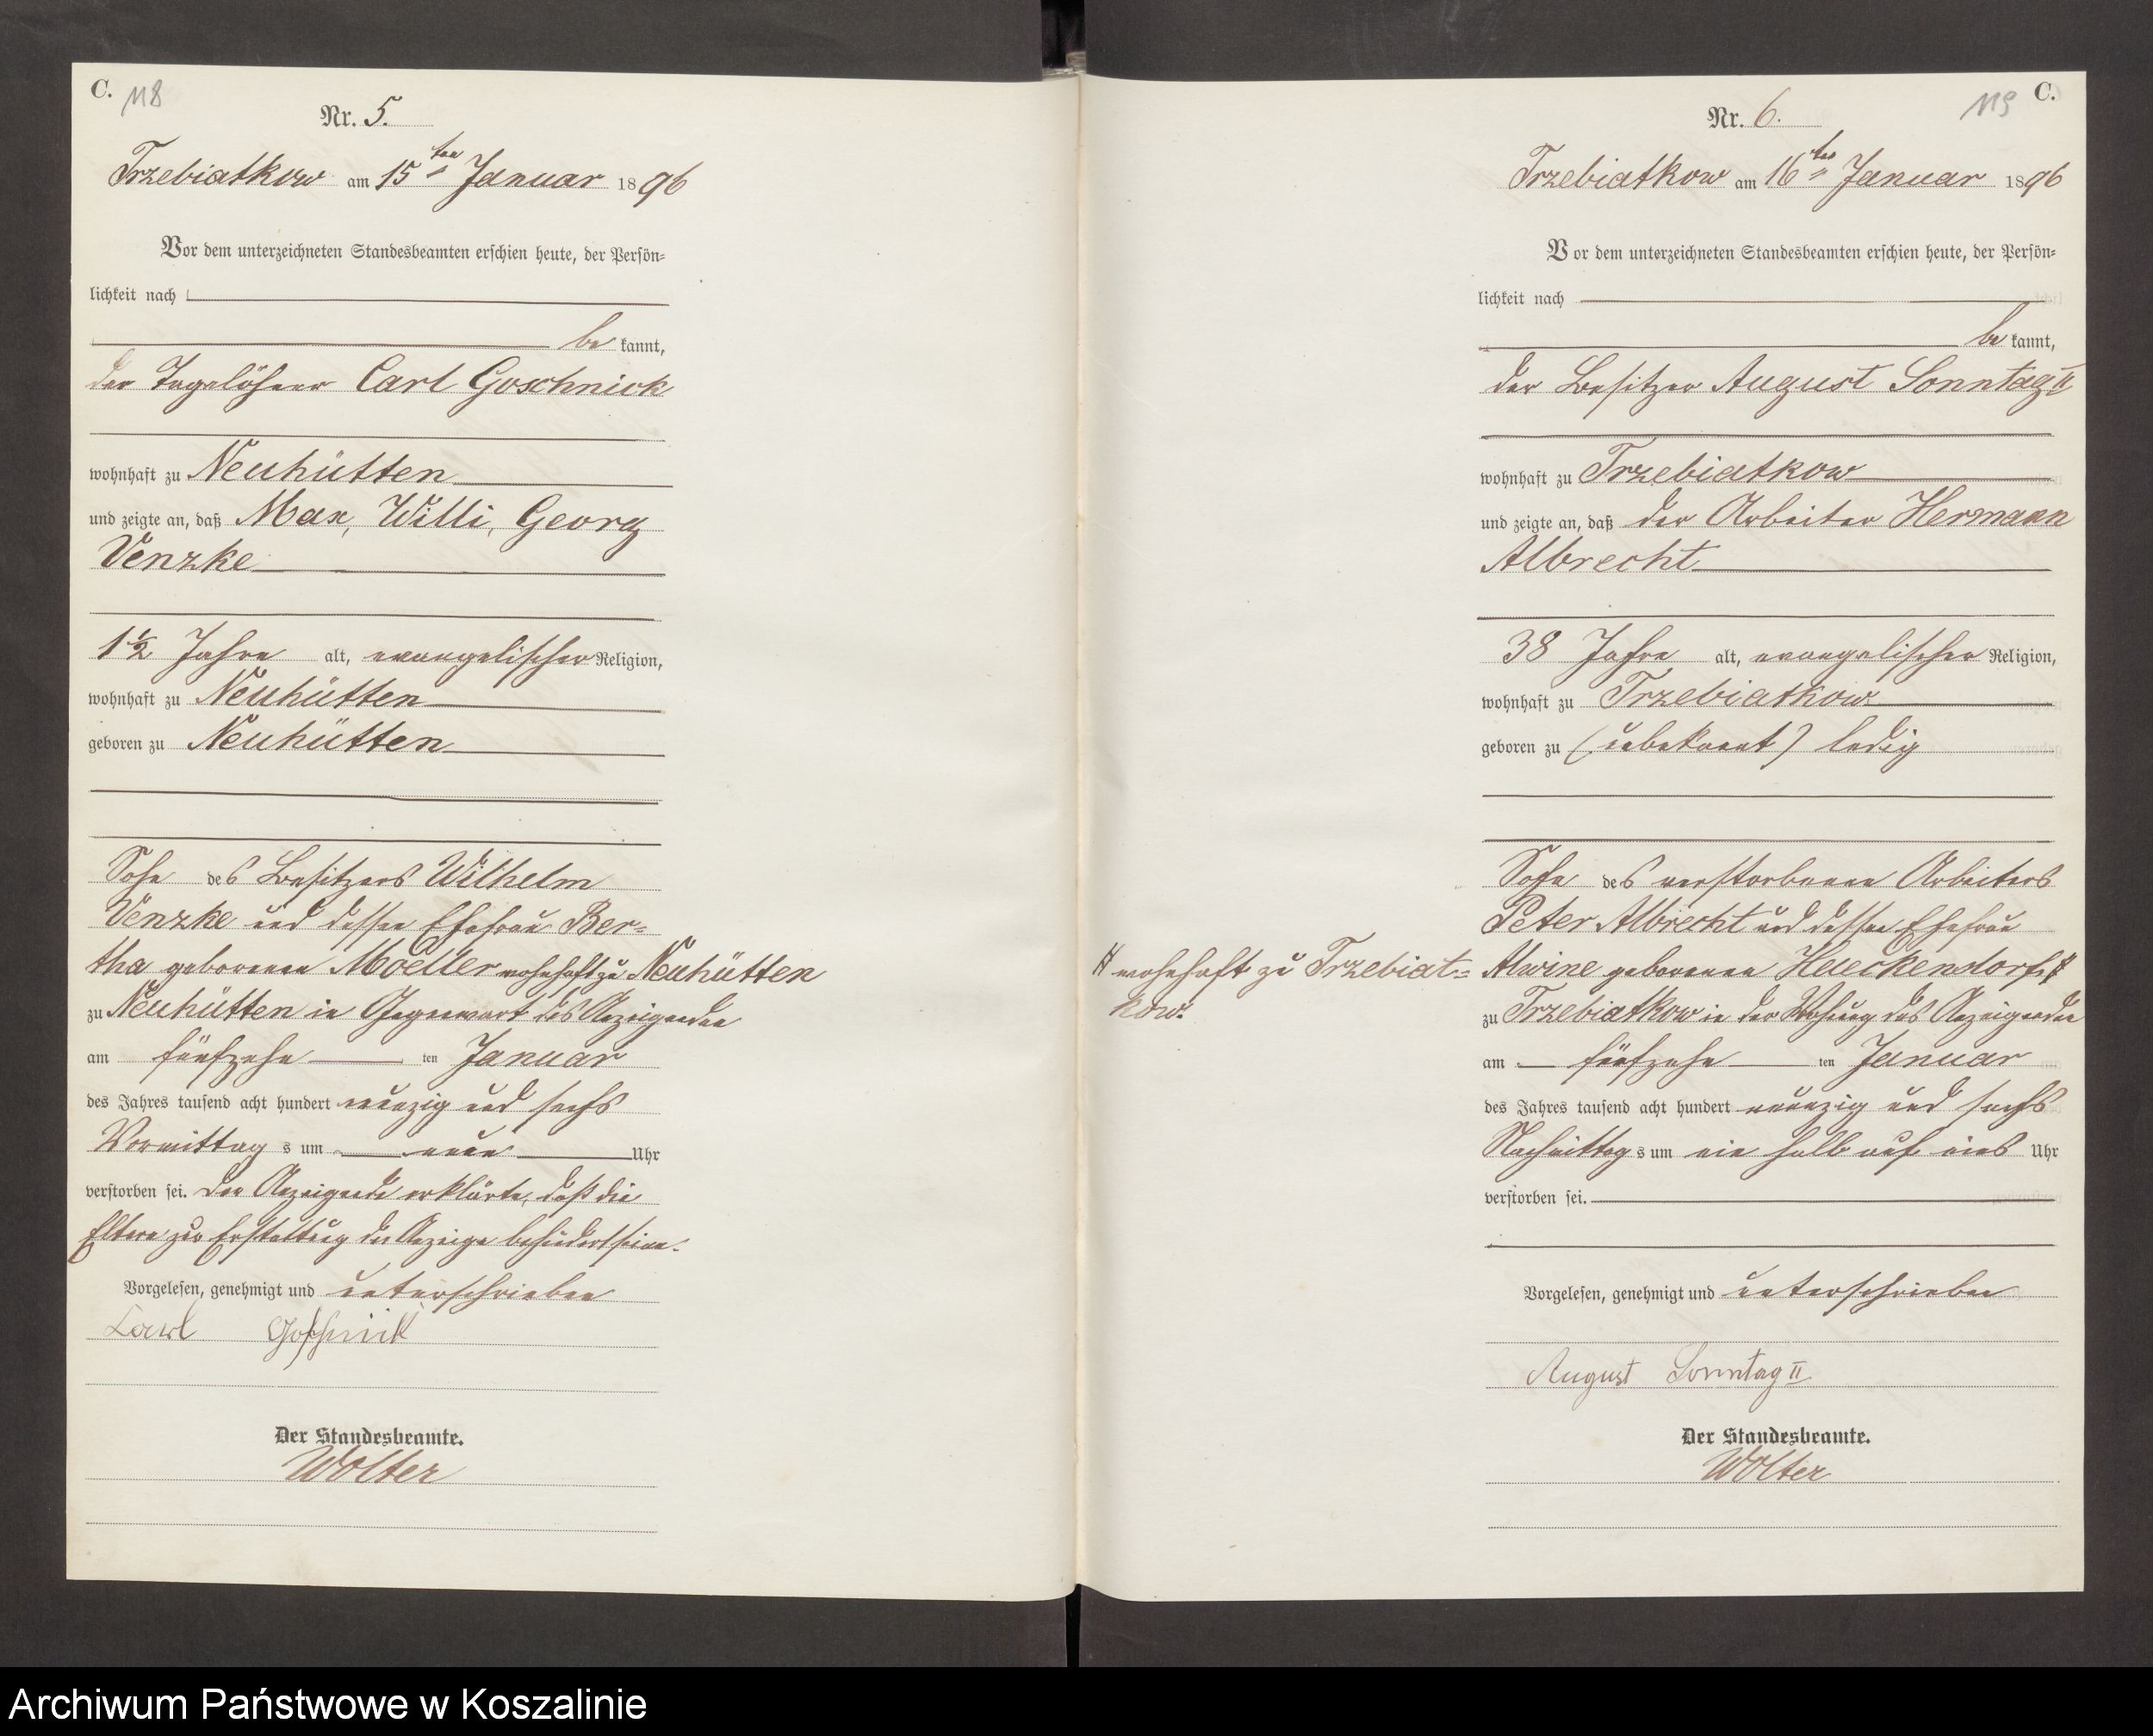 C. 118
Nr. 5.
Trzebiatkow am 15ten Januar 1896
Vor dem unterzeichneten Standesbeamten erschien heute, der Persön-
lichkeit nach
be kannt,
der Tagelöhner Carl Goschnick
wohnhaft zu Neuhütten
und zeigte an, daß Max, Willi, Georg
Venzke
1½ Jahre alt, evangelischer Religion,
wohnhaft zu Neuhütten
geboren zu Neuhütten
Sohn des Besitzers Wilhelm
Venzke und dessen Ehefrau Ber-
tha geborenen Moeller wohnhaft zu Neuhütten
zu Neuhütten in Gegenwart des Anzeigenden
am fünfzehn ten Januar
des Jahres tausend acht hundert neunzig und sechs
Vormittag s um neun Uhr
verstorben sei. Der Anzeigende erklärte, daß die
Eltern zur Erstattung der Anzeige behindert seien.
Vorgelesen, genehmigt und unterschrieben
Carl Goschnick
Der Standesbeamte.
Wolter
119 C.
Nr. 6.
Trzebiatkow am 16ten Januar 1896
Vor dem unterzeichneten Standesbeamten erschien heute, der Persön-
lichkeit nach
be kannt,
der Besitzer August Sonntag II
wohnhaft zu Trzebiatkow
und zeigte an, daß der Arbeiter Hermann
Albrecht
38 Jahre alt, evangelischer Religion,
wohnhaft zu Trzebiatkow
geboren zu (unbekannt) ledig
Sohn des verstorbenen Arbeiters
Peter Albrecht und dessen Ehefrau
Alwine geborenen Hueckendorf,
wohnhaft zu Trzebiat-
kow.
zu Trzebiatkow in der Wohnung des Anzeigenden
am fünfzehn ten Januar
des Jahres tausend acht hundert neunzig und sechs
Nachmittag s um ein halb auf eins Uhr
verstorben sei.
Vorgelesen, genehmigt und unterschrieben
August Sonntag II
Der Standesbeamte.
Wolter
Archiwum Państwowe w Koszalinie